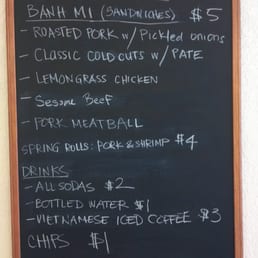 BANH MI (SANDWICHES) $5
- ROASTED PORK w/ Pickled onions
- CLASSIC COLD CUTS w/ PATE
- LEMONGRASS CHICKEN
- Sesame Beef
- PORK MEATBALL
SPRING ROLLS: PORK & SHRIMP $4
DRINKS
- ALL SODAS $2
- BOTTLED WATER $1
- VIETNAMESE ICED COFFEE $3
CHIPS $1